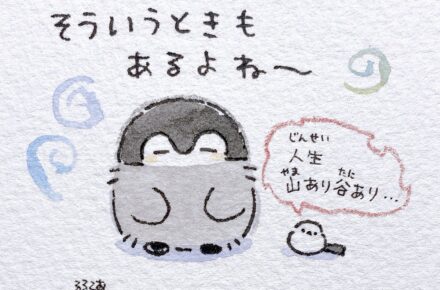 そういうときも
あるよね〜
じんせい
人生
やま たに
山あり谷あり…
るるてあ